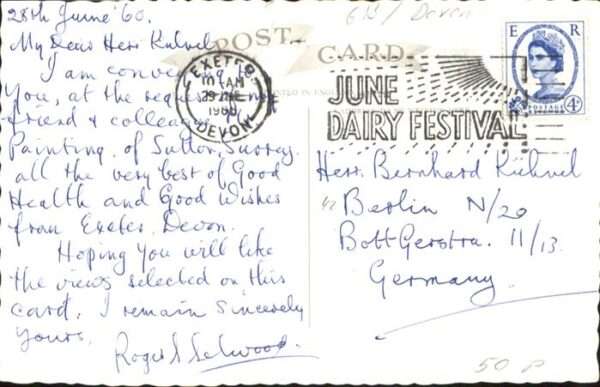 28th June '60.
6d / Devon
My Dear Herr Kühnel
POST CARD
I am conveying to
You, at the request of my
friend & colleague
Painting, of Sutton, Surrey.
all the very best of Good
Health and Good Wishes
from Exeter, Devon.
Hoping You will like
the views selected on this
card. I remain Sincerely
Yours,
Roger S Selwood.
EXETER
10 AM
29 JNE
1960
DEVON
JUNE
DAIRY FESTIVAL
E R
POSTAGE
4D
IN ENGLAND
Herr. Bernhard Kühnel
Berlin N/20
Bott Gerstra. 11/13.
Germany.
50 P